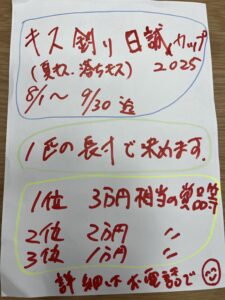 キス釣り日誠カップ
(夏キス.落ちキス) 2025
8/1〜9/30迄
1匹の長寸で求めます.
1位 3万円相当の賞品等
2位 2万円 〃
3位 1万円 〃
詳細はお電話で